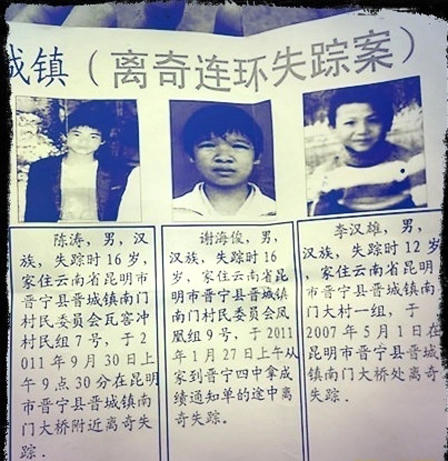 城镇（离奇连环失踪案）
陈涛，男，汉
族，失踪时16岁，
家住云南省昆明市
晋宁县晋城镇南门
村民委员会瓦窑冲
村民组7号，于2
011年9月30日上
午9点30分在昆明
市晋宁县晋城镇南
门大桥附近离奇失
踪．
谢海俊，男，
汉族，失踪时16
岁，家住云南省昆
明市晋宁县晋城镇
南门村民委员会凤
凰组9号，于2011
年1月27日上午从
家到晋宁四中拿成
绩通知单的途中离
奇失踪。
李汉雄，男，
汉族，失踪时12岁
，家住云南省昆明
市晋宁县晋城镇南
门大村一组，于
2007年5月1日在
昆明市晋宁县晋城
镇南门大桥处离奇
失踪．